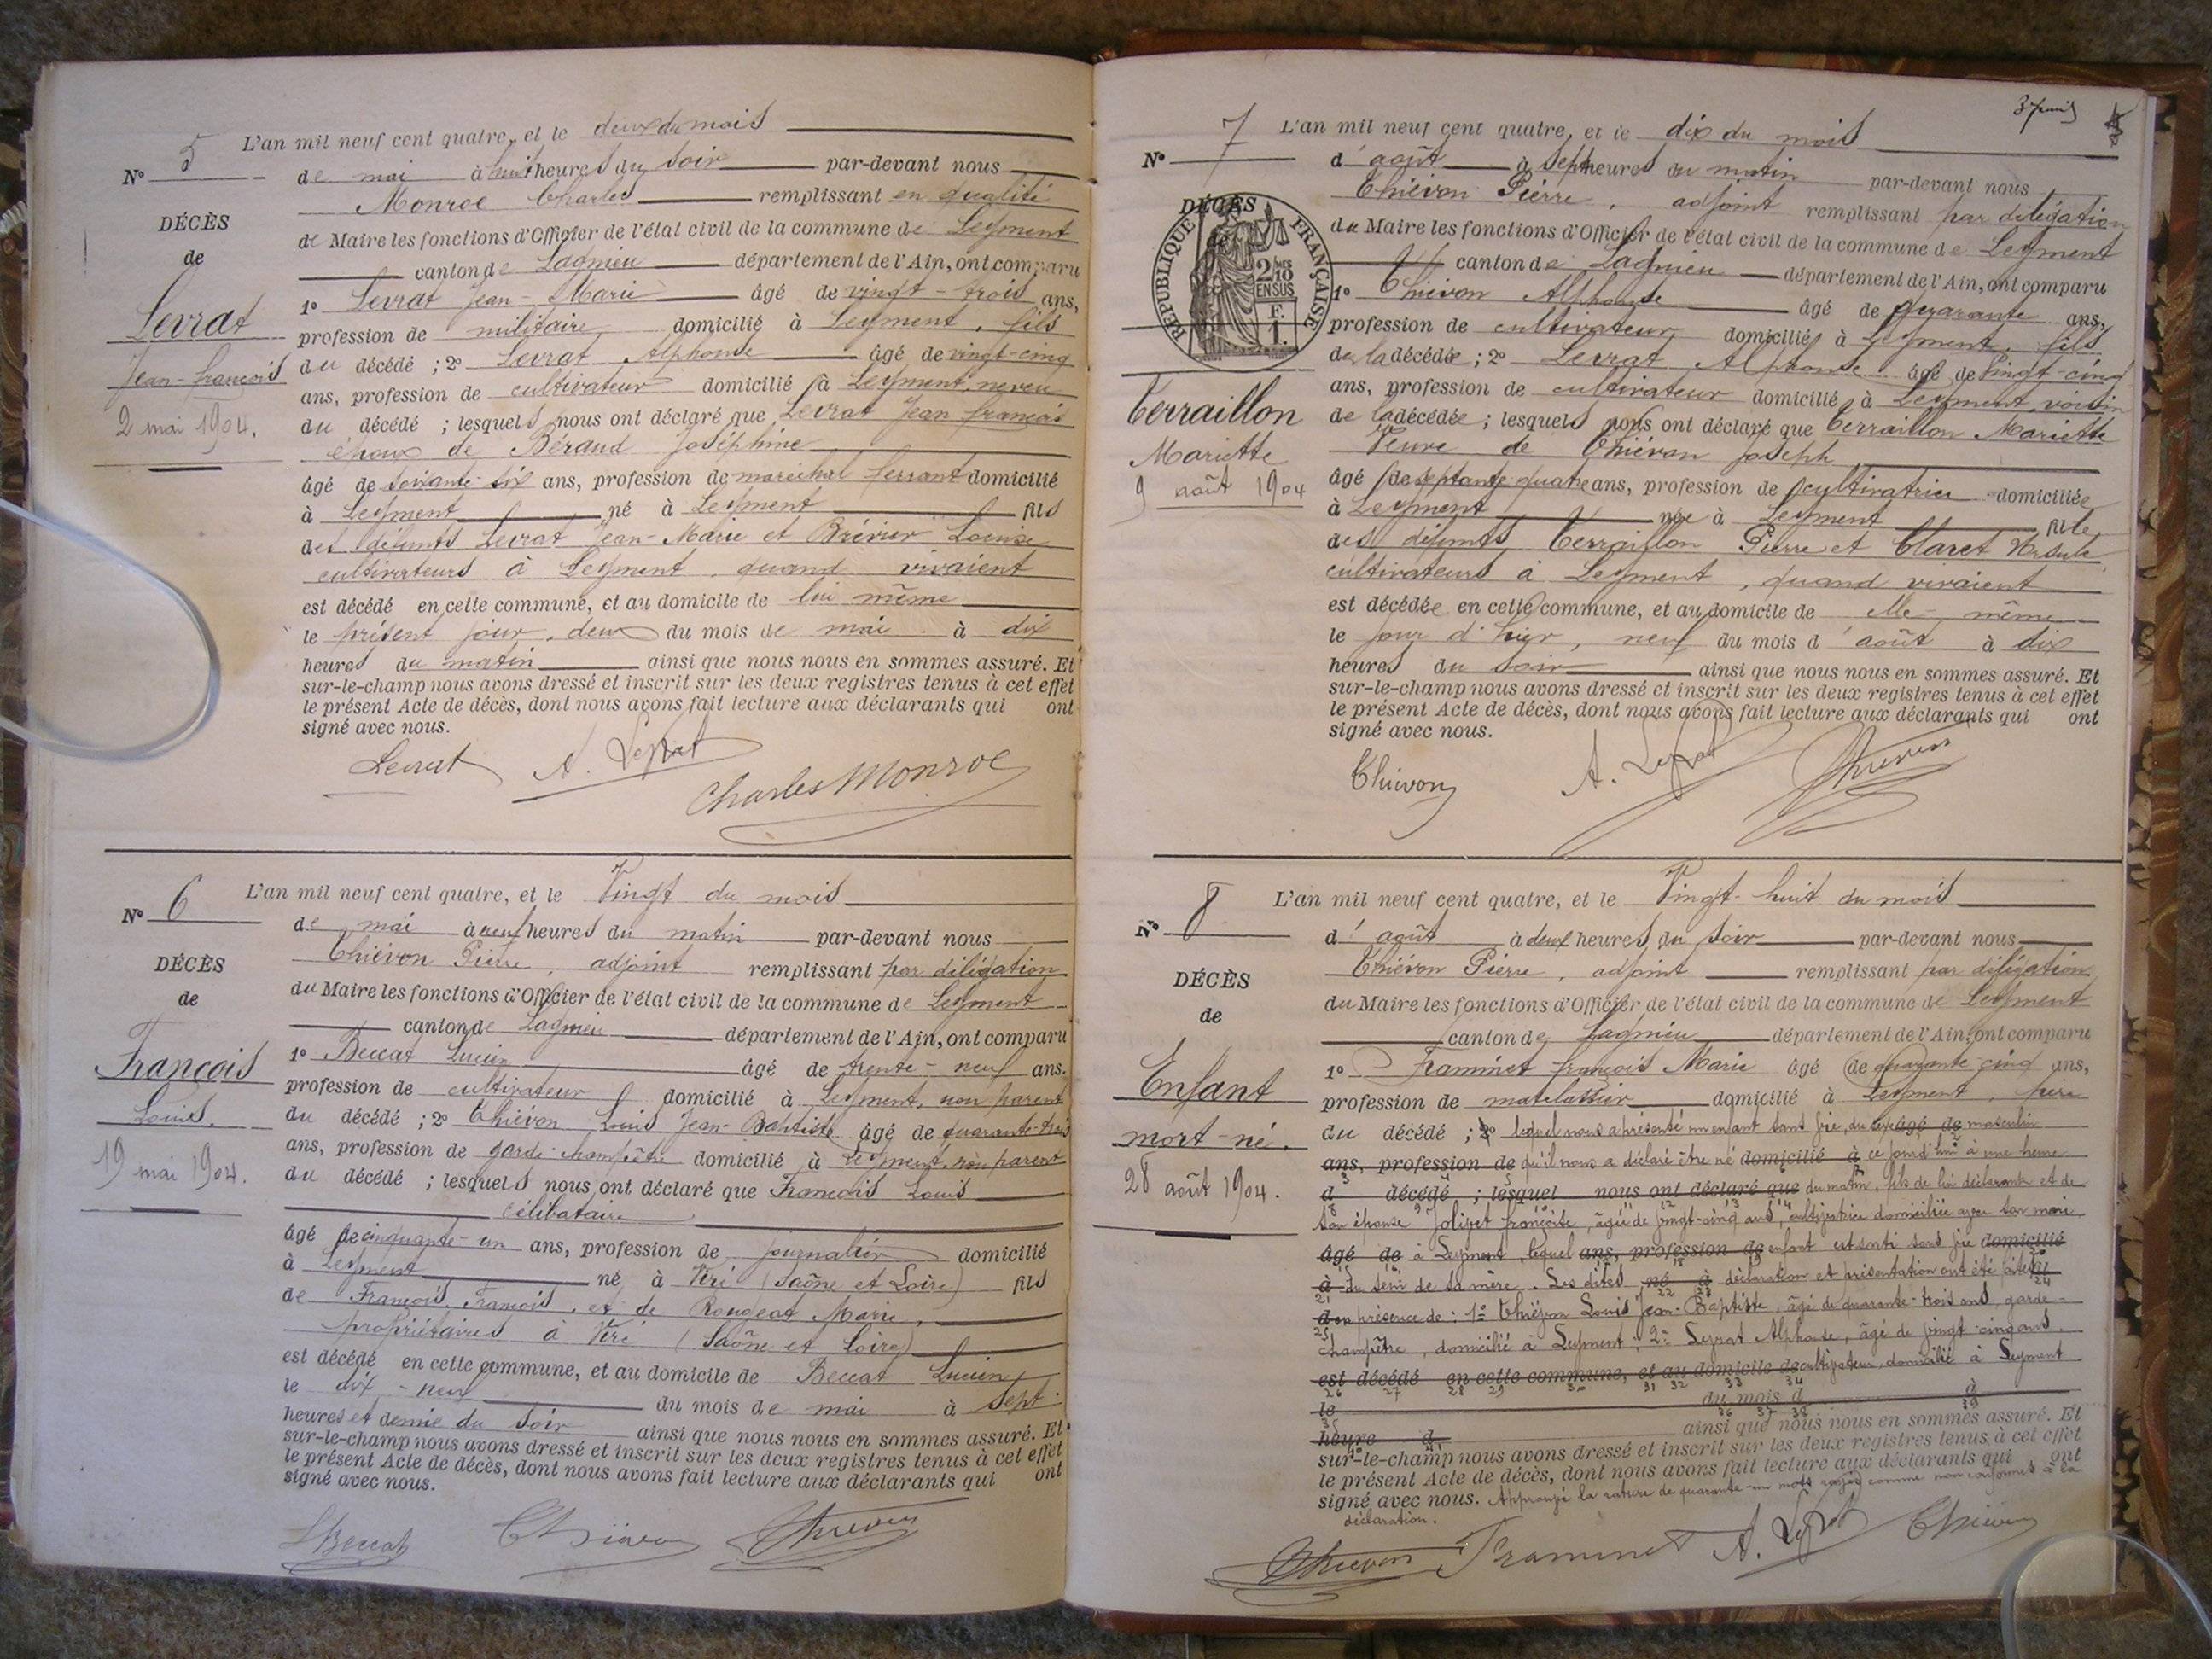 L'an mil neuf cent quatre, et le deux du mois
N° 5 de mai à huit heures du soir par-devant nous
Monroe Charles remplissant en qualité
DÉCÈS
de Maire les fonctions d'Officier de l'état civil de la commune de Leyment
de
canton de Lagnieu département de l'Ain, ont comparu
1° Levrat Jean-Marie âgé de vingt-trois ans,
Levrat
profession de militaire domicilié à Leyment, fils
Jean-françois
du décédé ; 2° Levrat Alphonse âgé de vingt-cinq
ans, profession de cultivateur domicilié à Leyment, neveu
2 mai 1904.
du décédé ; lesquels nous ont déclaré que Levrat Jean françois
époux de Béraud Joséphine
âgé de soixante-six ans, profession de maréchal ferrant domicilié
à Leyment né à Leyment fils
des défunts Levrat Jean-Marie et Brévier Louise
cultivateurs à Leyment, quand vivaient
est décédé en cette commune, et au domicile de lui même
le présent jour, deux du mois de mai à dix
heures du matin ainsi que nous nous en sommes assuré. Et
sur-le-champ nous avons dressé et inscrit sur les deux registres tenus à cet effet
le présent Acte de décès, dont nous avons fait lecture aux déclarants qui ont
signé avec nous.
Levrat A. Levrat
Charles Monroe
L'an mil neuf cent quatre, et le Vingt du mois
N° 6
de mai à neuf heures du matin par-devant nous
Thiévon Pierre, adjoint remplissant par délégation
DÉCÈS
du Maire les fonctions d'Officier de l'état civil de la commune de Leyment
de
canton de Lagnieu département de l'Ain, ont comparu
François
1° Beccat Lucien âgé de trente-neuf ans.
profession de cultivateur domicilié à Leyment, non parent
Louis.
du décédé ; 2° Thiévon Louis Jean-Baptiste âgé de quarante-trois
ans, profession de garde-champêtre domicilié à Leyment, non parent
19 mai 1904.
du décédé ; lesquels nous ont déclaré que François Louis
célibataire
âgé de cinquante-un ans, profession de journalier domicilié
à Leyment né à Viré (Saône et Loire) fils
de François, François, et de Rongeat Marie,
propriétaires à Viré (Saône et Loire)
est décédé en cette commune, et au domicile de Beccat Lucien
le dix-neuf du mois de mai à sept
heures et demie du soir ainsi que nous nous en sommes assuré. Et
sur-le-champ nous avons dressé et inscrit sur les deux registres tenus à cet effet
le présent Acte de décès, dont nous avons fait lecture aux déclarants qui ont
signé avec nous.
LBeccat Thiévon Thievon
L'an mil neuf cent quatre, et le dix du mois
N° 7
d'août à sept heures du matin par-devant nous
Thiévon Pierre, adjoint remplissant par délégation
DÉCÈS
de
RÉPUBLIQUE FRANÇAISE
2/10 EN SUS
F. 1.
du Maire les fonctions d'Officier de l'état civil de la commune de Leyment
canton de Lagnieu département de l'Ain, ont comparu
1° Thiévon Alphonse âgé de quarante ans,
profession de cultivateur domicilié à Leyment, fils
de la décédée ; 2° Levrat Alphonse âgé de vingt-cinq
Terraillon
ans, profession de cultivateur domicilié à Leyment, voisin
de la décédée ; lesquels nous ont déclaré que Terraillon Mariette
Mariette
Veuve de Thiévon Joseph
9 août 1904
âgé de septante quatre ans, profession de cultivatrice domiciliée
à Leyment née à Leyment fille
des défunts Terraillon Pierre et Claret Ursule
cultivateurs à Leyment, quand vivaient
est décédée en cette commune, et au domicile de elle-même
le jour d'hier, neuf du mois d'août à dix
heures du soir ainsi que nous nous en sommes assuré. Et
sur-le-champ nous avons dressé et inscrit sur les deux registres tenus à cet effet
le présent Acte de décès, dont nous avons fait lecture aux déclarants qui ont
signé avec nous.
Thiévon A. Levrat Thievon
L'an mil neuf cent quatre, et le Vingt-huit du mois
N° 8
d'août à deux heures du soir par-devant nous
Thiévon Pierre, adjoint remplissant par délégation
DÉCÈS
du Maire les fonctions d'Officier de l'état civil de la commune de Leyment
de
canton de Lagnieu département de l'Ain, ont comparu
Enfant
1° Framinet françois Marie âgé de quarante-cinq ans,
profession de matelassier domicilié à Leyment, père
mort-né.
du décédé ; 2° lequel nous a présenté un enfant sans vie, du sexe âgé de masculin
ans, profession de qu'il nous a déclaré être né domicilié à ce jourd'hui à une heure
28 août 1904.
d décédé ; lesquel nous ont déclaré que du matin, fils de lui déclarant et de
son épouse Jolivet françoise, âgée de vingt-cinq ans, cultivatrice domiciliée avec son mari
âgé de à Leyment, lequel ans, profession de enfant est sorti sans vie domicilié
à du sein de sa mère. Les dites né à déclaration et présentation ont été faites
d en présence de : 1° Thiévon Louis Jean-Baptiste, âgé de quarante-trois ans, garde-
champêtre, domicilié à Leyment ; 2° Levrat Alphonse, âgé de vingt-cinq ans,
est décédé en cette commune, et au domicile de cultivateur, domicilié à Leyment
le du mois d à
heure d ainsi que nous nous en sommes assuré. Et
sur-le-champ nous avons dressé et inscrit sur les deux registres tenus à cet effet
le présent Acte de décès, dont nous avons fait lecture aux déclarants qui ont
signé avec nous. Approuvé la rature de quarante-un mots rayés comme non conformes à la
déclaration.
Thievon Framinet A. Levrat Thiévon